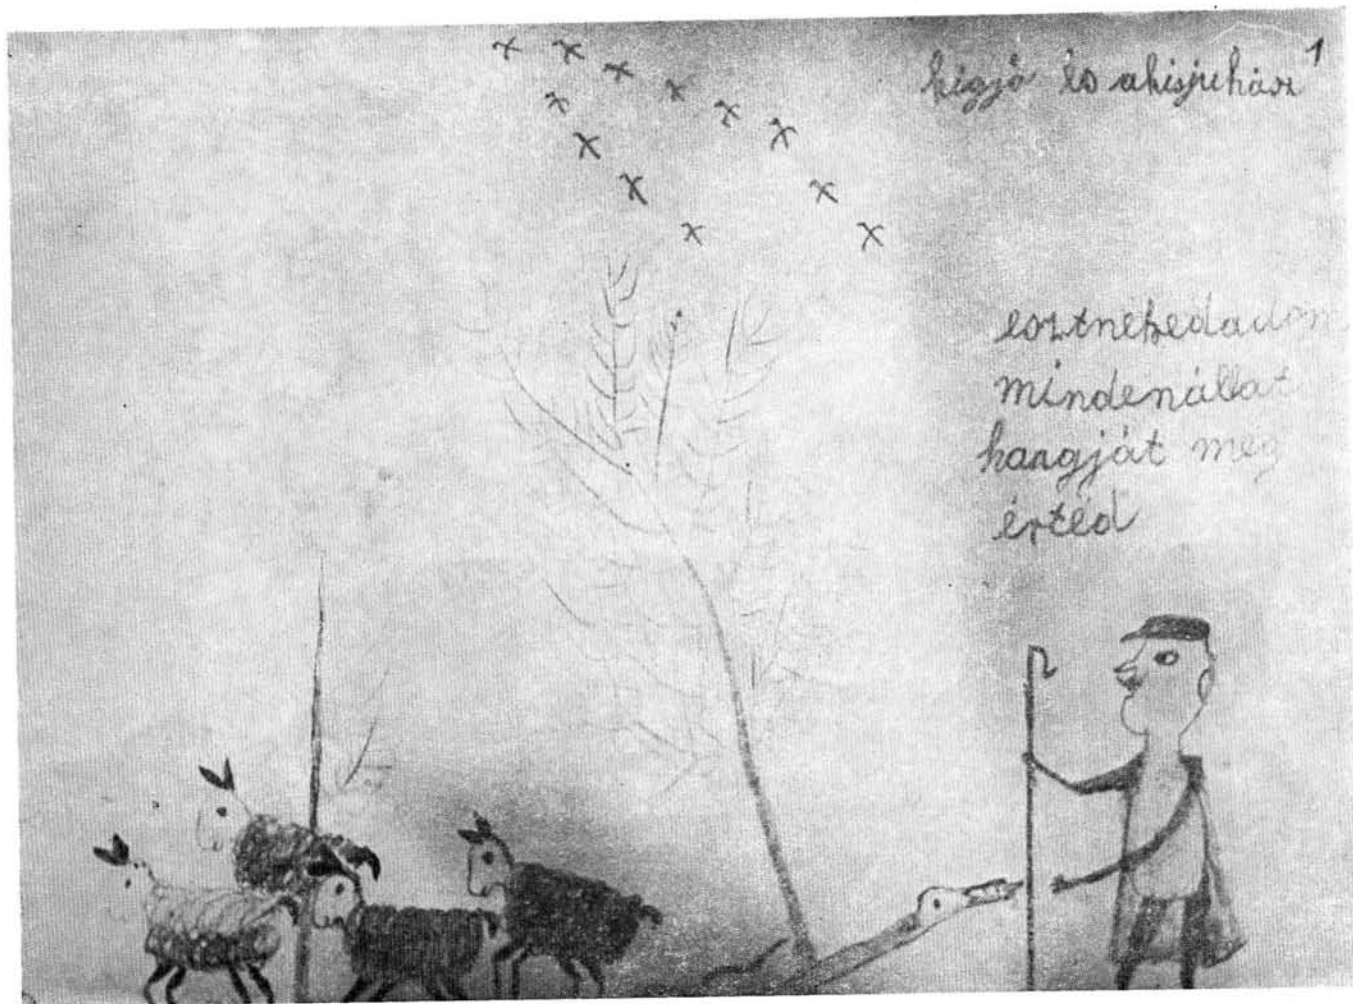 kigjó és akisjuhász 1
esztnekedadom
mindenállat
hangját meg
értéd